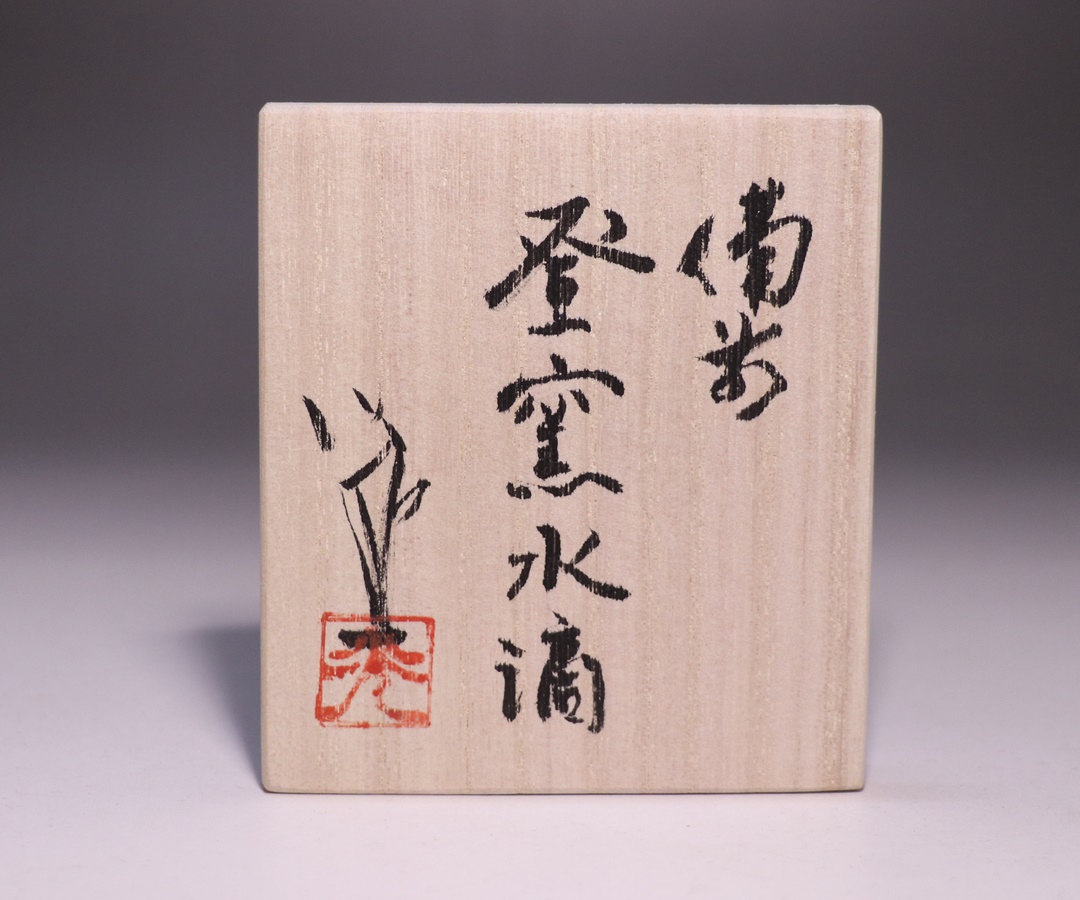 備前
登窯水滴